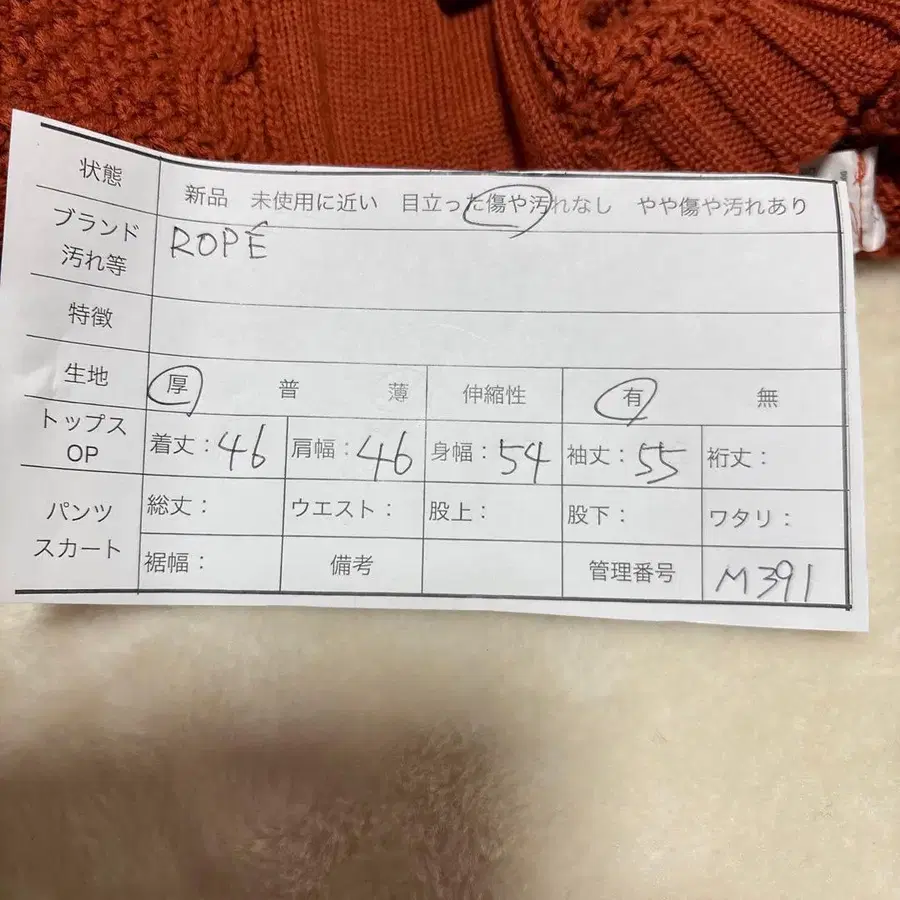 状態 新品 未使用に近い 目立った傷や汚れなし やや傷や汚れあり
ブランド ROPÉ
汚れ等
特徴
生地 厚 普 薄 伸縮性 有 無
トップス
OP 着丈：46 肩幅：46 身幅：54 袖丈：55 裄丈：
パンツ 総丈： ウエスト： 股上： 股下： ワタリ：
スカート 裾幅： 備考 管理番号 M391